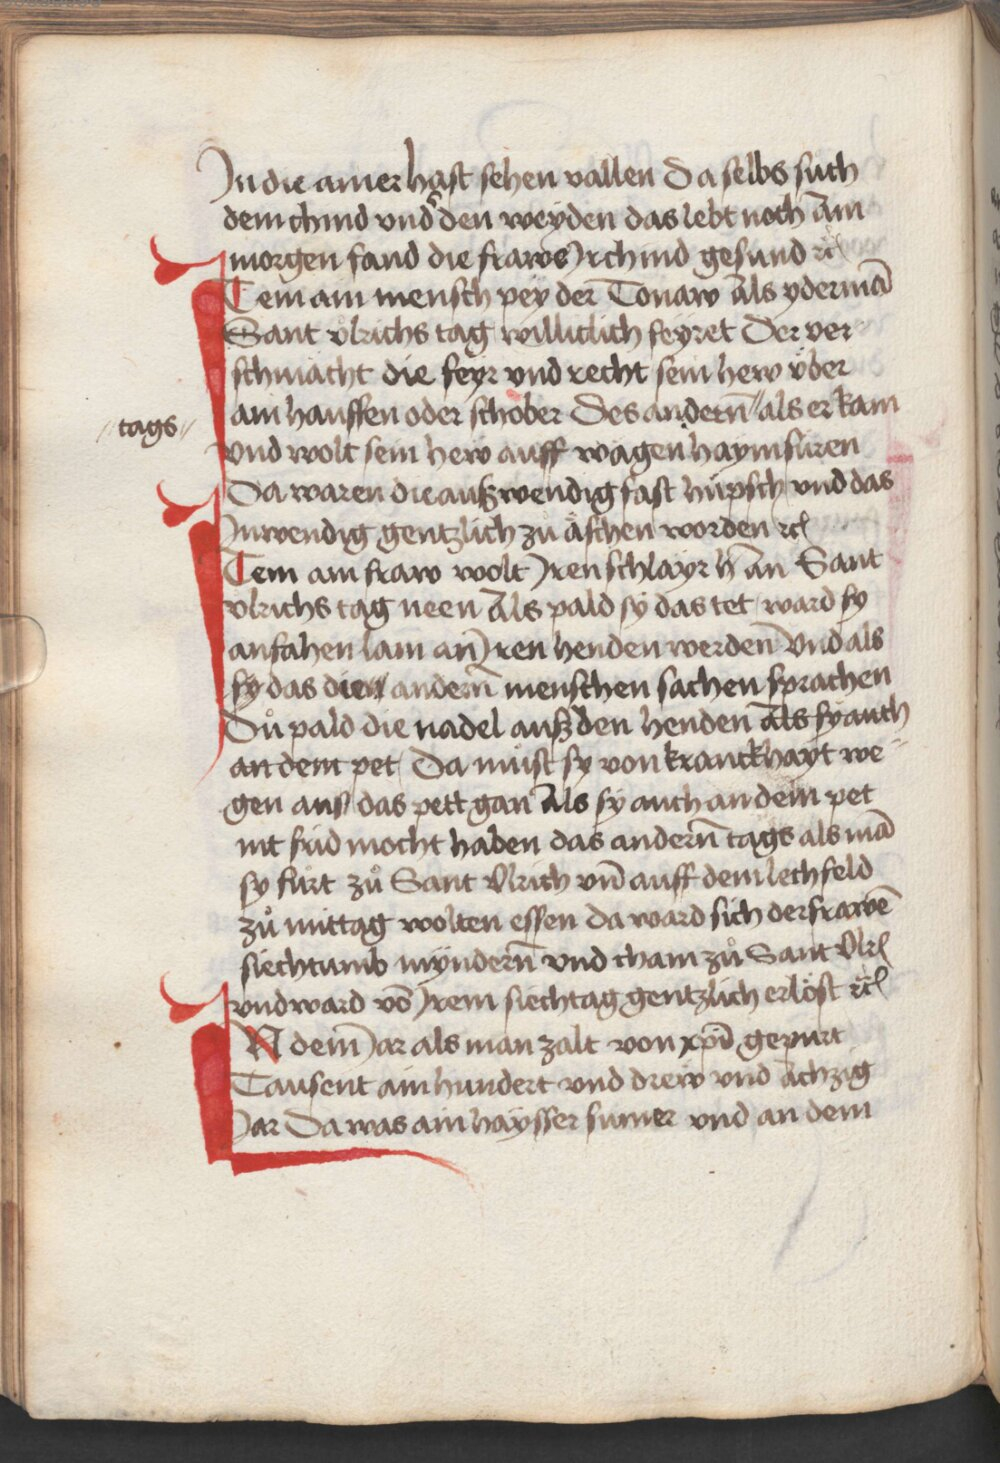 In die amer hast sehen vallen Da selbs such
dem chind vnder den weyden das lebt noch Am
morgen fand die fraw Ir chind gesund rc̃
Item ain mensch pey der Tonaw Als yderman̄
Sant vͦlrichs tag williclich feyret Der ver
schmächt die feyr vnd recht sein hew vͤber
ain hauffen oder schober Des andern̄ " als er kam
"tags"
vnd wolt sein hew auff wägen haymfüren
Da waren die außwendig fast hüpsch vnd das
Inwendig gentzlich zuͦ äschen worden rc̃
Item ain fraw wolt Iren schlayr h an Sant
vlrichs tag neen Als pald sy das tet ward sy
anfahen lam an Iren henden werden Vnd als
sy das die andern̄ menschen sachen sprachen
Duͦ pald die nadel auß den henden Als sy auch
an dem pet Da muͦst sy von kranckhayt we-
gen auf das pett gan Als sy auch an dem pet
nit frid mocht haben das andern̄ tags als mā
sy fuͤrt zuͦ Sant Vlrich vn̄ auff dem lechfeld
zuͦ mittag wolten essen da ward sich der frawē
siechtumb myndern̄ vnd cham zuͦ Sant Vlr̃
vnd ward vō Irem siechtag gentzlich erlöst rc̃
IN dem Iar als man zalt von xp̄i gepurt
Tausent ainhundert vnd drew vnd achzig
Iar Da was ain haysser sumer vnd an dem